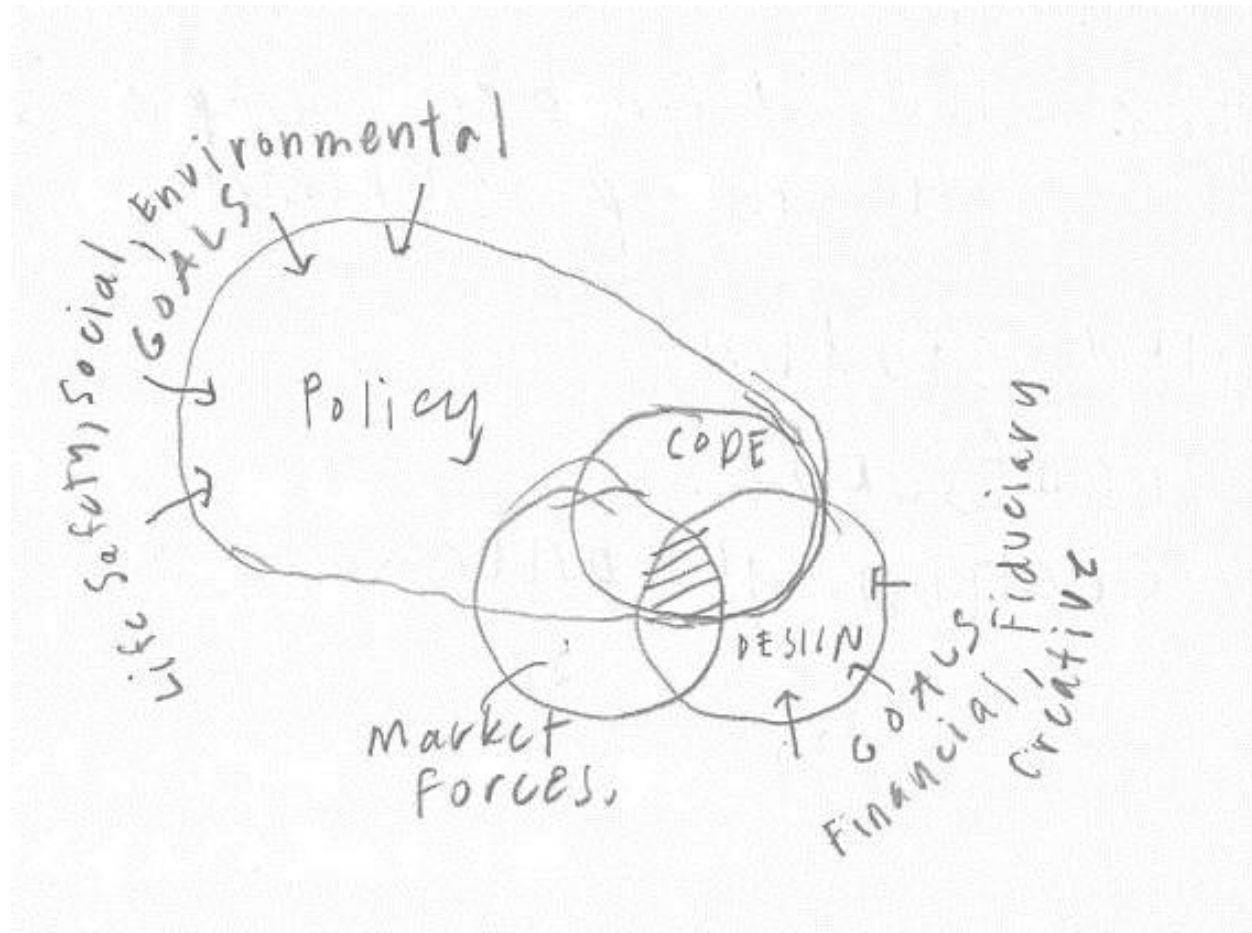 Life Safety, Social, Environmental
GOALS
Policy
CODE
DESIGN
Market
Forces.
GOALS
Financial, Fiduciary
Creative